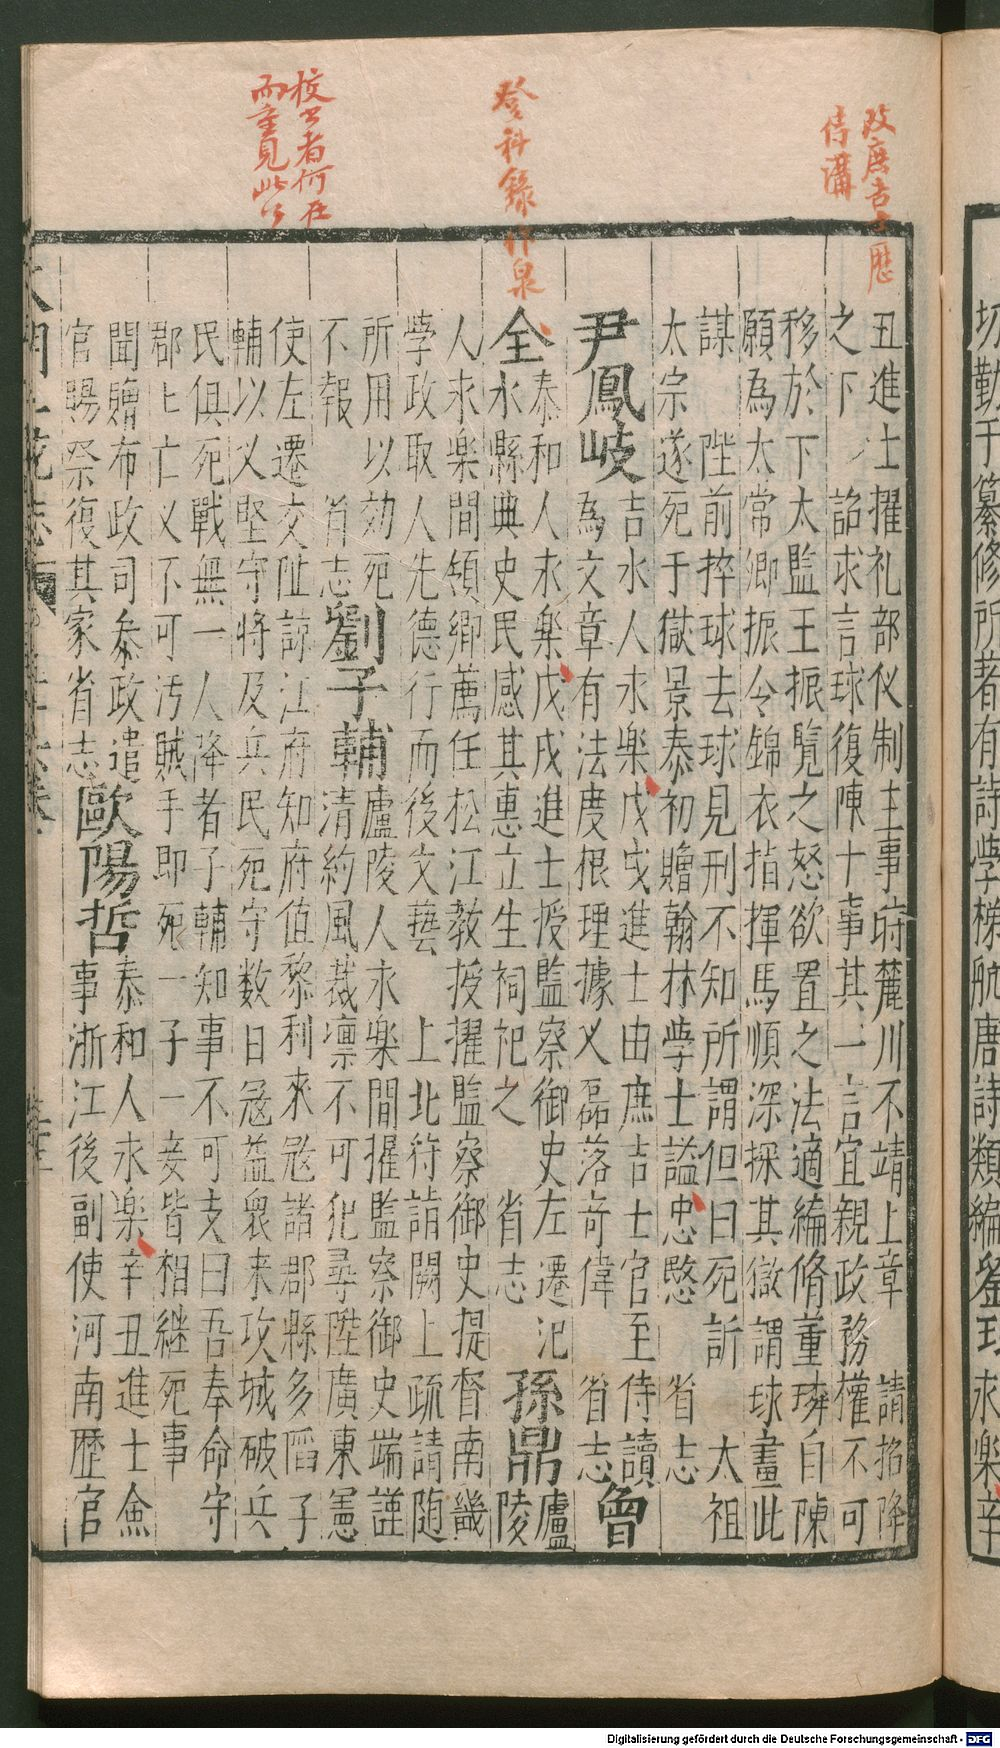 切勤于纂修所著有詩學梯航唐詩類編劉球永樂辛
改庶吉士歷
侍講
登科錄作泉
校書者何在
而重見此
丑進士擢礼部仪制主事時麓川不靖上章 請招降
之下 詔求言球復陳十事其一言宜親政務權不可
移於下太監王振覽之怒欲置之法適編脩董璘自陳
願為太常卿振令錦衣指揮馬順深探其獄謂球畫此
謀 陛前捽球去球見刑不知所謂但曰死訢 太祖
太宗遂死于獄景泰初贈翰林學士謚忠愍 省志
尹鳳岐
吉水人永樂戊戌進士由庶吉士官至侍讀
為文章有法度根理據义磊落奇偉 省志
曾
全
泰和人永樂戊戌進士授監察御史左遷汜
水縣典史民感其惠立生祠祀之 省志
孫鼎
廬
陵
人永樂間領鄉薦任松江教授擢監察御史提督南畿
學政取人先德行而後文藝 上北狩詣闕上疏請随
所用以効死
不報 省志
劉子輔
廬陵人永樂間擢監察御史端謹
清約風裁凛不可犯尋陞廣東憲
使左遷交阯諒江府知府值黎利來冦諸郡縣多䧟子
輔以义堅守將及兵民死守数日冦益衆来攻城破兵
民俱死戰無一人降者子輔知事不可支曰吾奉命守
郡亡义不可汚賊手即死一子一妾皆相継死事
聞贈布政司叅政遣
官賜祭復其家省志
歐陽哲
泰和人永樂辛丑進士僉
事浙江後副使河南歷官
Digitalisierung gefördert durch die Deutsche Forschungsgemeinschaft - DFG